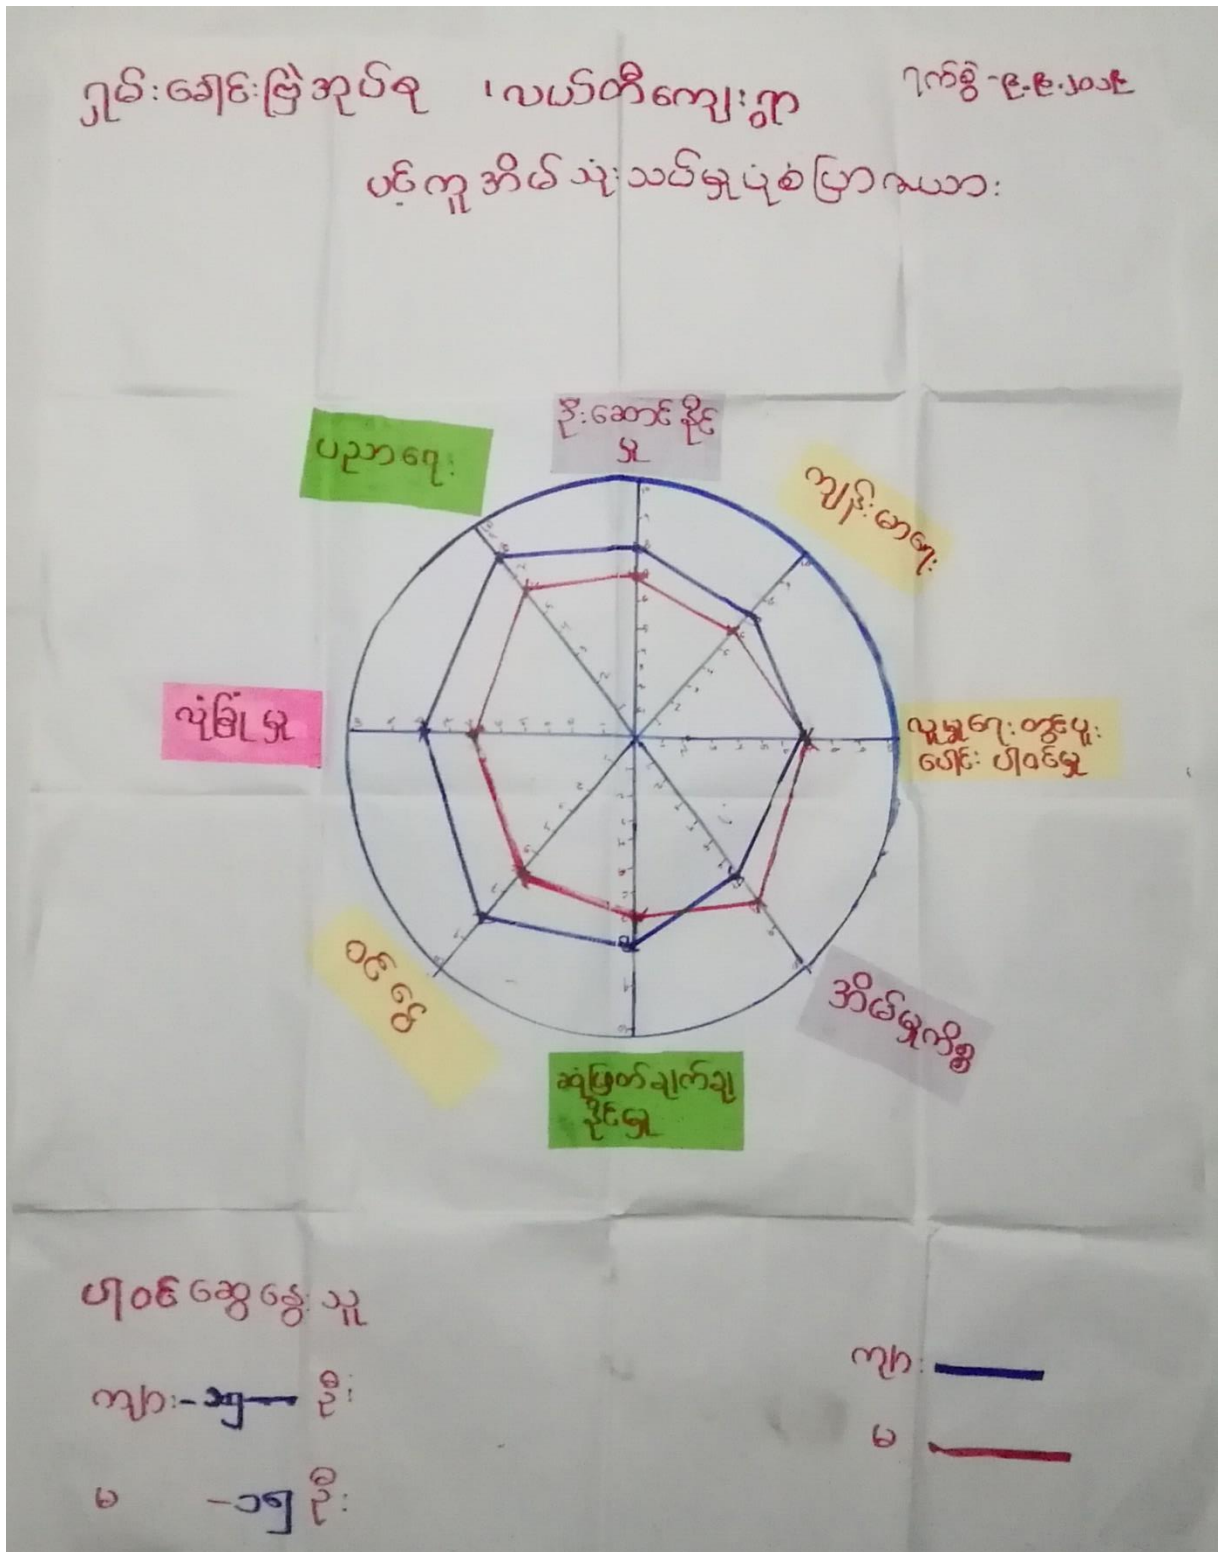 ရှမ်းခေါင်းဗြဲအုပ်စု ၊ လယ်တီကျေးရွာ
ရက်စွဲ -၉.၉.၂၀၁၉
ပင့်ကူအိမ်သုံးသပ်မှုပုံစံပြဇယား
ဦးဆောင်နိုင်
မှု
ပညာရေး
ကျန်းမာရေး
လုံခြုံမှု
လူမှုရေးတွင်ပူး
ပေါင်းပါဝင်မှု
ဝင်ငွေ
အိမ်မှုကိစ္စ
ဆုံးဖြတ်ချက်ချ
နိုင်မှု
ပါဝင်ဆွေးနွေးသူ
ကျား
ကျား - ဦး
မ
မ -၁၅ ဦး